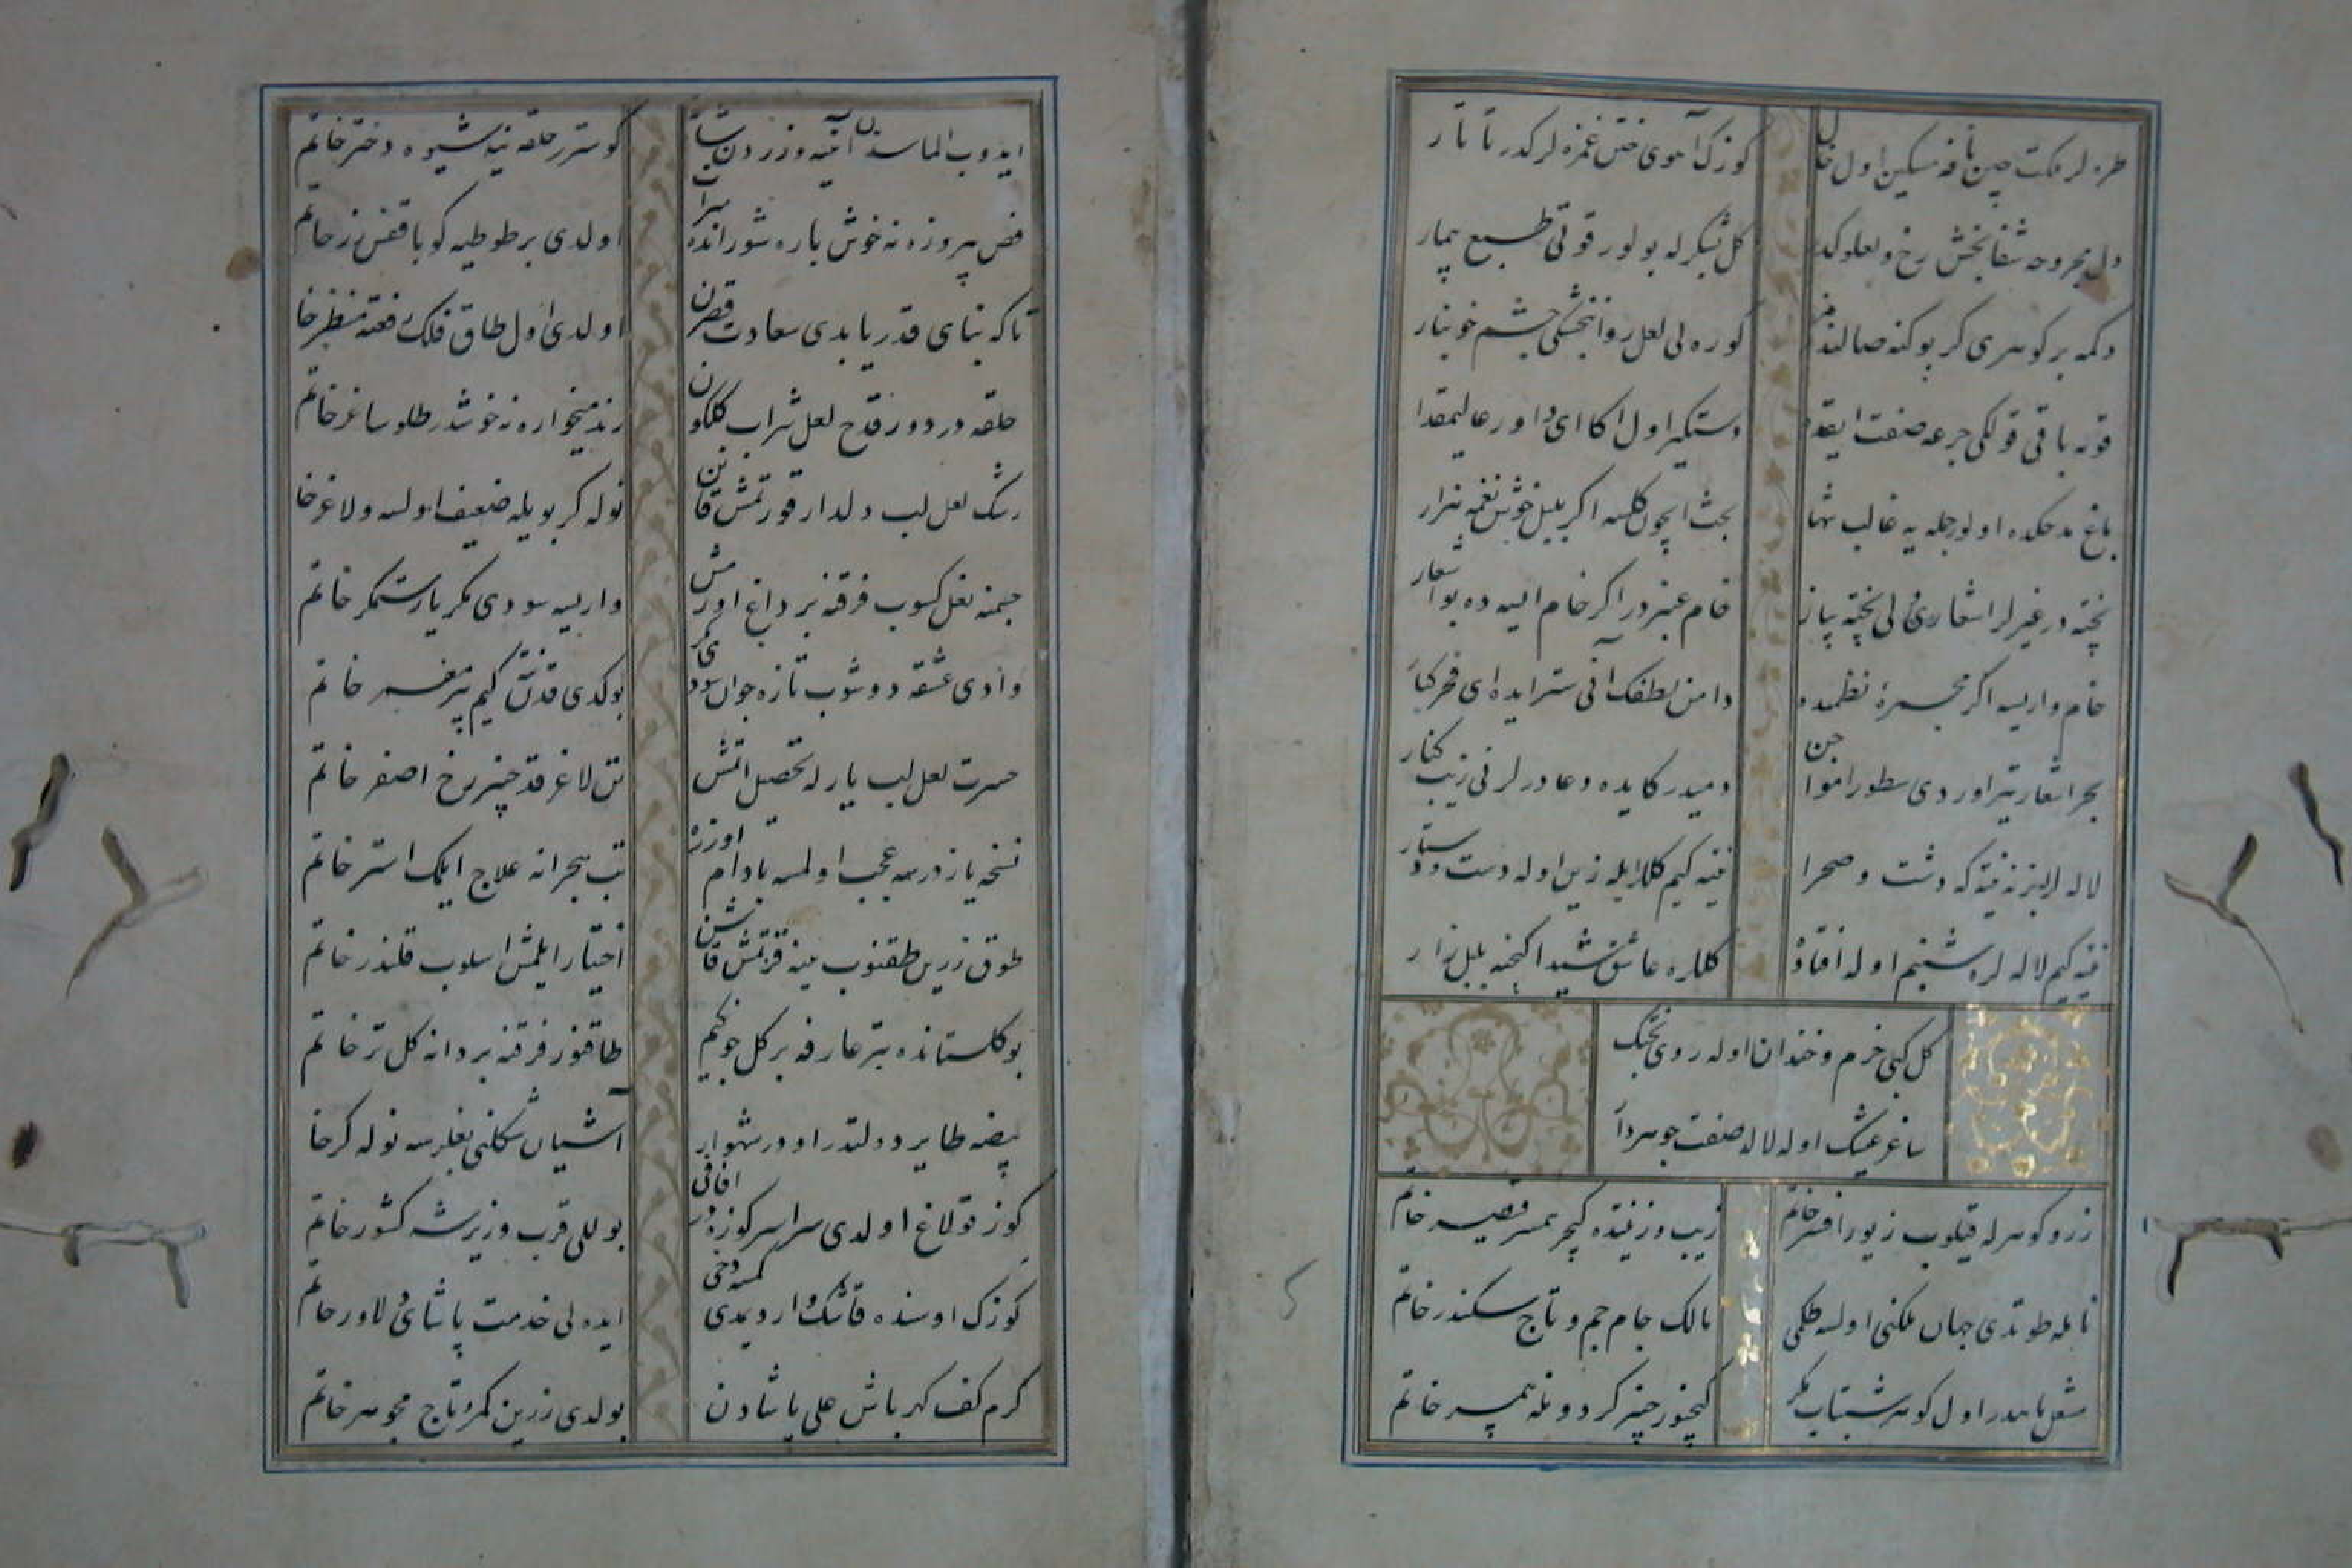 طره لر مكت چين نافه مسكين اول خال
كوزك آهوى ختن غمزه لركدر تاتار
دل مجروحه شفابخش رخ و لعلوكدر
كل شكرله بولور قوتى طبع بيمار
دكمه بر كوهرى كر بو كنه صالند
كوره لى لعل روانبخشكى چشم خونبار
قوبه باقى قولكى جرعه صفت اياقده
دستكير اول اكا اى داور عاليمقدار
باغ مدحكده اولور جمله يه غالب تنها
بحث ايچون كلسه اكر بلبل خوش نغمه هزار
پخته در غيرلر اشعارى لى پخته پياز
خام عنبردر اكر خام ايسه ده بو اشعار
خام وار ايسه اكر مجمرهٔ نظمده
دامن لطفك آنى ستر ايده اى فخر كبار
بحر اشعار يتر اوردى سطور امواجن
دميدر كايده دعا درلرنى زيب كنار
لاله لر بزنيته كه دشت و صحرا
نيته كيم كللر ايله زين اوله دست و دستار
نيته كيم لاله لره شبنم اوله افتاده
كللره عاشق شيدا كچنه بلبل زار
كل كبى خرم و خندان اوله روى بختك
ساغر عيشك اوله لاله صفت جوهردار
زر و كوهرله قيلوب زيور افسر خاتم
زيب و زينتده كچر همسر قيصر خاتم
نامله طوتدى جهان ملكنى اولسه طكمى
مالك جام جم و تاج سكندر خاتم
مشعل ماهدر اول كوهر شبتاب مكر
كيم چنبر كردونه همسر خاتم
ايدوب الماسدن آينه و زردن شانه
كوستر حلقه نيه شيوه دختر خاتم
فص پيروزه نه خوش ياره شور انده سراب
اولدى بر طوطيه كويا قفس زر خاتم
تا كه بناى قدر ياپدى سعادت قصرن
اولدى اول طاق فلك رفعته منظر خاتم
حلقه در دور قدح لعل شراب كلكون
رند ميخواره نه خوشدر طلو ساغر خاتم
رشك لعل لب دلدار قورتمش قانن
نوله كر بويله ضعيف اولسه ولاغر خاتم
جسمنه نعل كسوب فرقنه بر داغ اورمش
وار ايسه سودى مكر يار ستمكر خاتم
وادى عشقه دوشوب تازه جوان سودى مكر
بوكدى قدنى كيم پير معمر خاتم
حسرت لعل لب يارله تحصيل اتمش
تن لاغر قد چنبر رخ اصفر خاتم
نسخه يازدرسه عجب اولمسه بادام اوزره
تب هجرانه علاج ايلمك استر خاتم
طوق زرين طقنوب سينه قزتمش قاشن
اختيار ايلمش اسلوب قلندر خاتم
بو كلستانده يتر عارفه بر كل چونكيم
طاقنور فرقنه بر دانه كل تر خاتم
بيضه طاير دولتدر او در شهوار
آشيان شكلنى بغلرسه نوله كر خاتم
كوز قولاغ اولدى سراسر كوزدر افاقى
بوللى قرب وزير شه كشور خاتم
كوزك اوسنده قاشك وار ديمدى كمسه دخى
ايده لى خدمت پاشاى دلاور خاتم
كرم كف كهر پاش على پاشادن
بولدى زرين كمر و تاج مجوهر خاتم